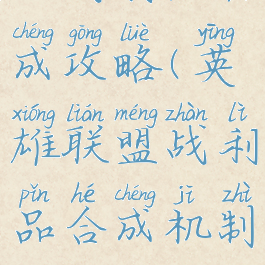 chéng gōng lüè yīng
成攻略(英
xióng lián méng zhàn lì
雄联盟战利
pǐn hé chéng jī zhì
品合成机制